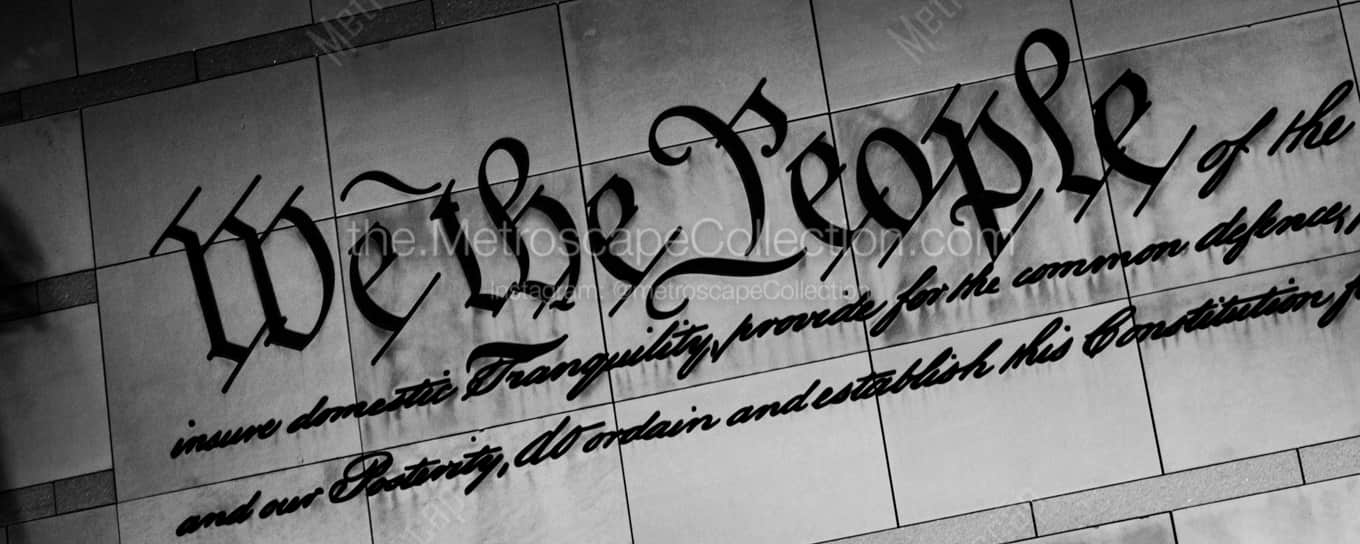 We the People of the
insure domestic Tranquility, provide for the common defence,
and our Posterity, do ordain and establish this Constitution
the.MetroscapeCollection.com
Instagram: @metroscapeCollection